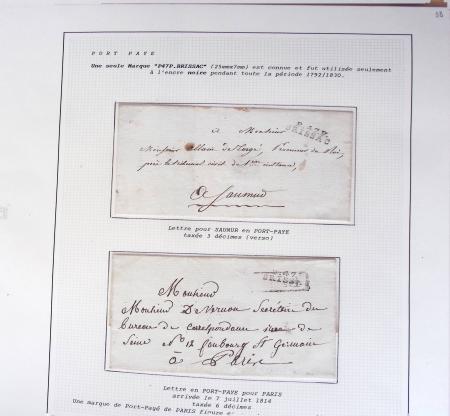 88
PORT PAYE
Une seule Marque "P47P.BRISSAC" (25mmx7mm) est connue et fut utilisée seulement
à l'encre noire pendant toute la période 1792/1830.
P.47.P.
BRISSAC
à Monsieur
Monsieur de Vergé, Procureur du Roi,
près le tribunal civil de 1ère instance,
à Saumur
Lettre pour SAUMUR en PORT-PAYE
taxée 3 décimes (verso)
Monsieur
Monsieur De Vernon Secrétaire du
Bureau de correspondance rue de
Seine N° 12 faubourg St Germain
à Paris
Lettre en PORT-PAYE pour PARIS
arrivée le 7 juillet 1814
taxée 6 décimes
Une marque de Port-Payé de PARIS figure